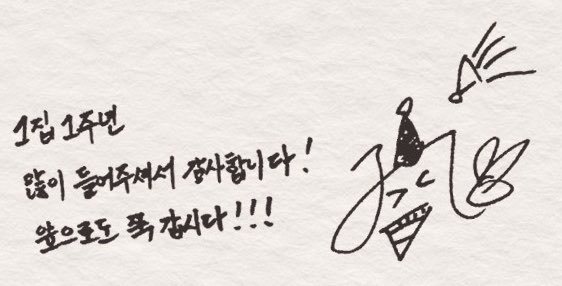 1집 1주년
많이 들어주셔서 감사합니다!
앞으로도 쭉 갑시다!!!